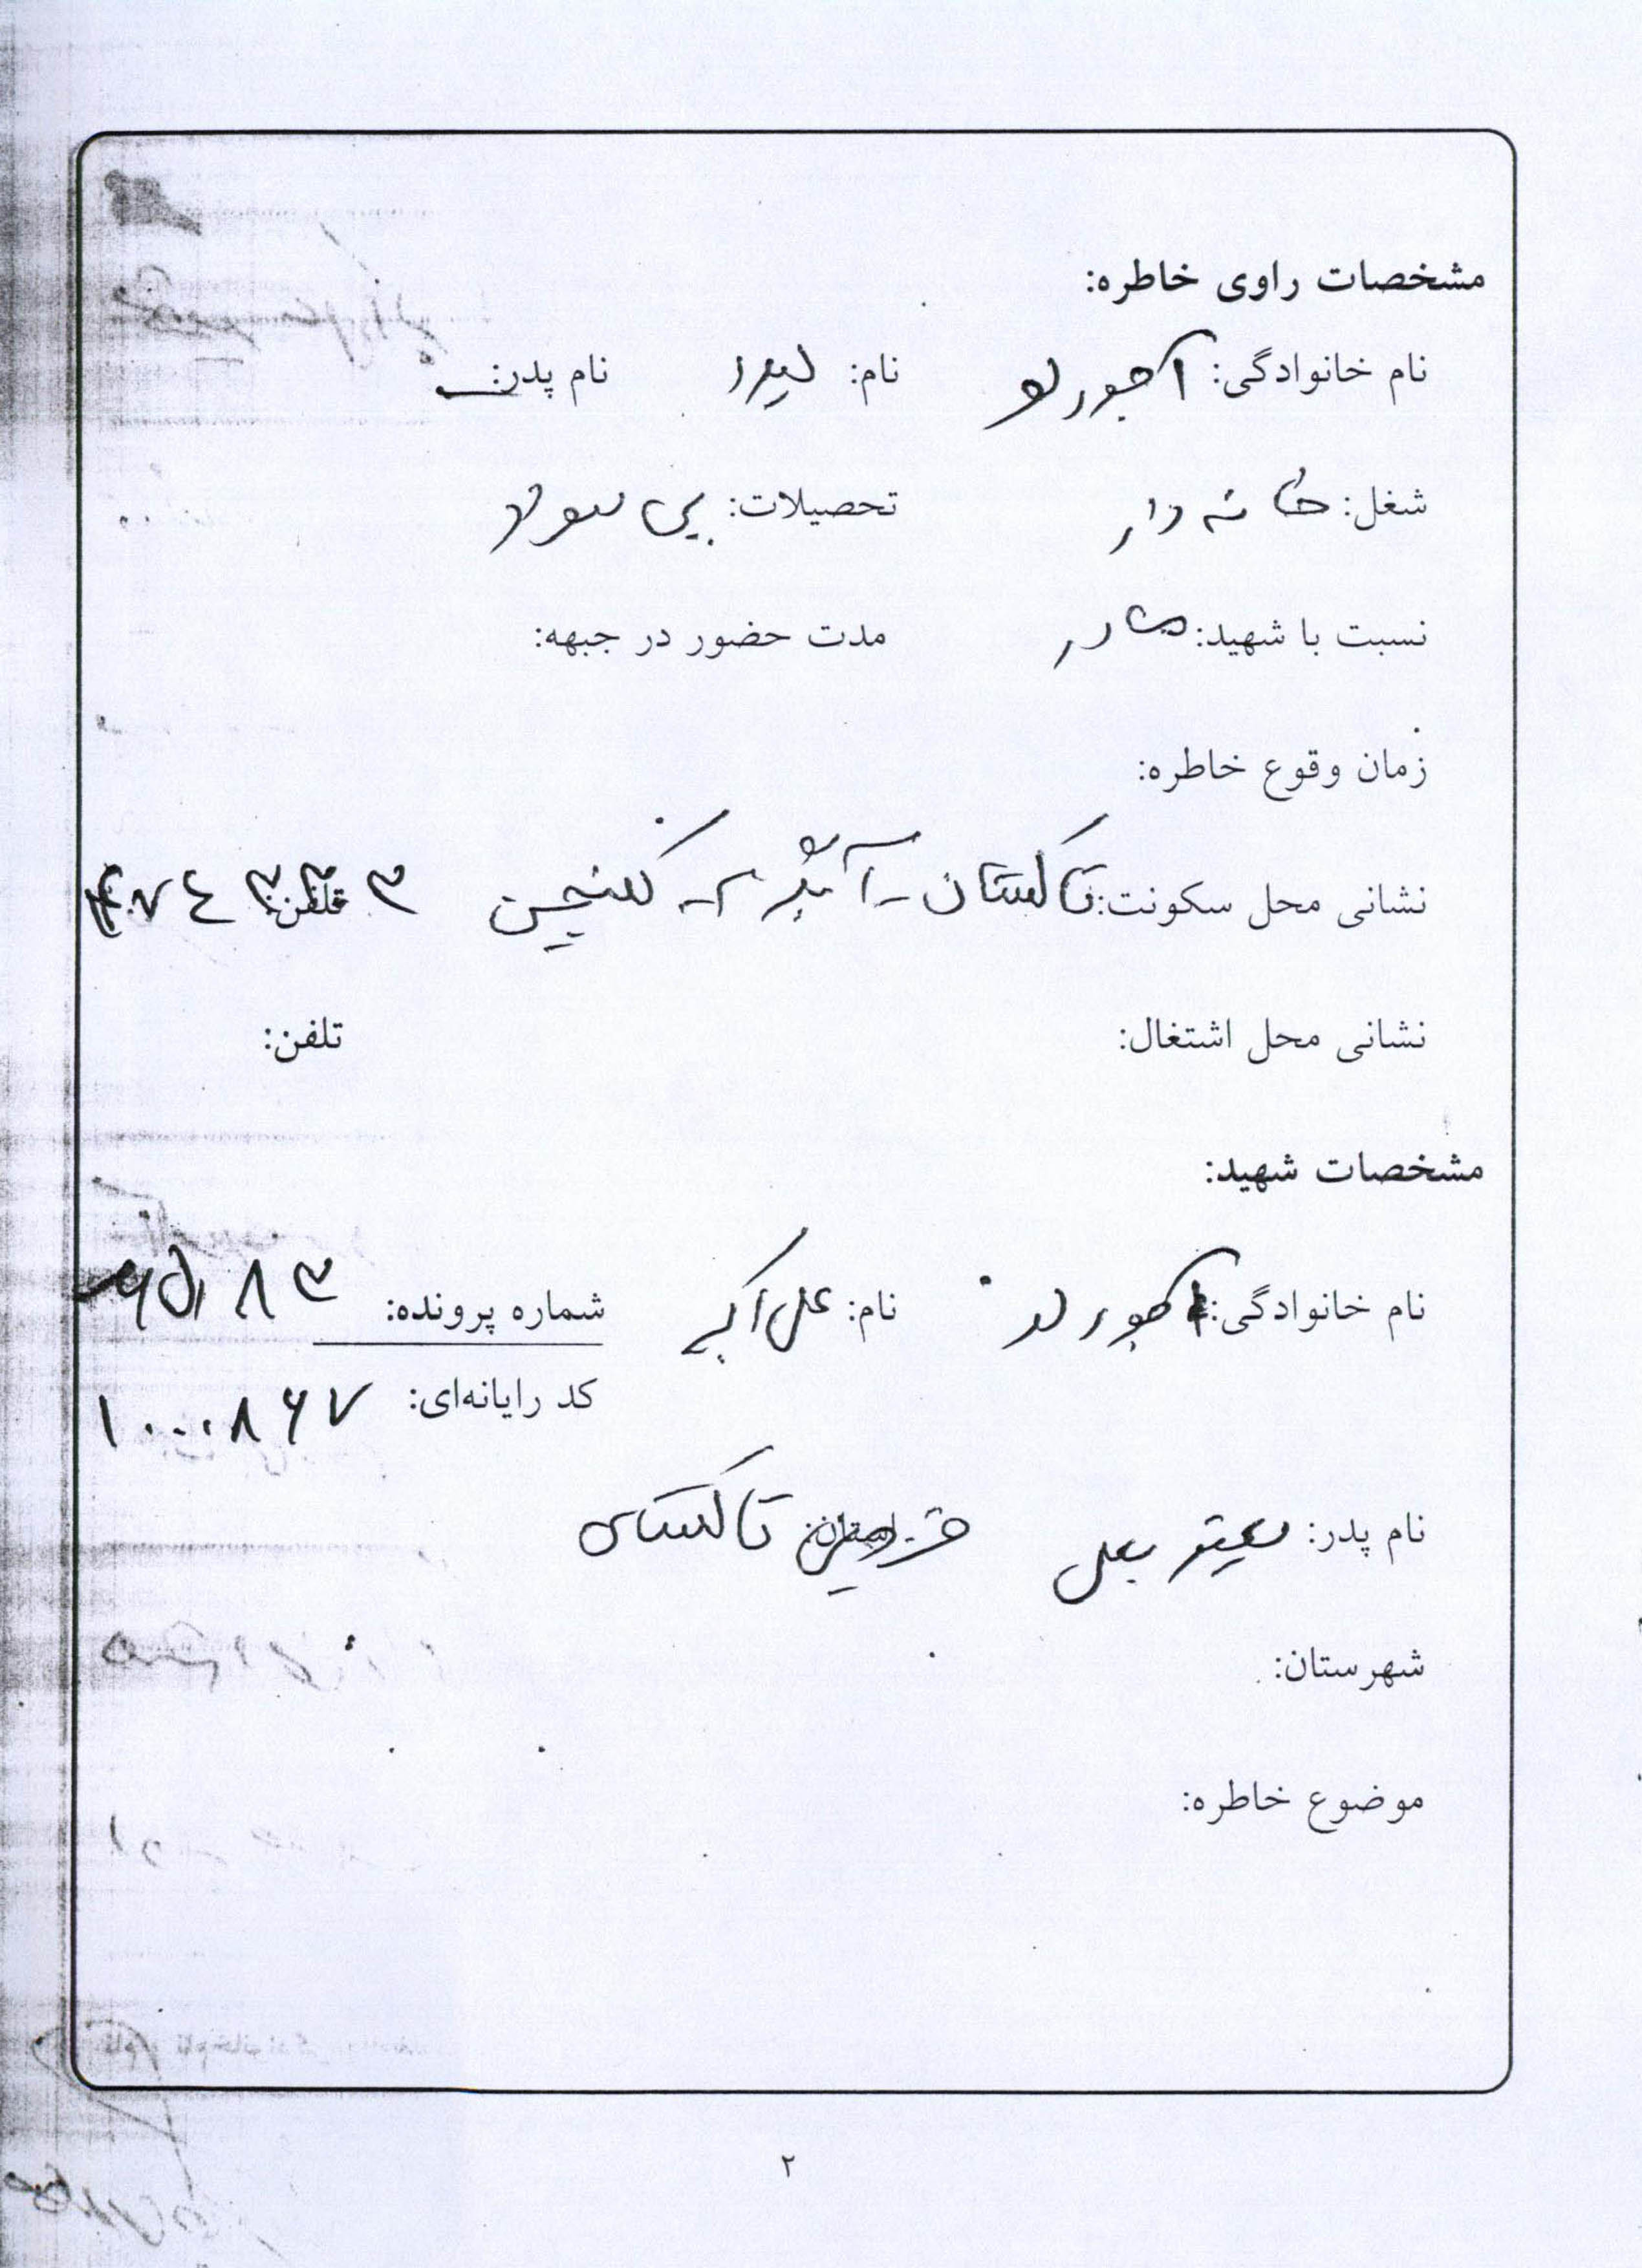 مشخصات راوی خاطره:
نام خانوادگی: آجورلو نام: نام پدر:
شغل: خانه دار تحصیلات: بی سواد
نسبت با شهید: مادر مدت حضور در جبهه:
زمان وقوع خاطره:
نشانی محل سکونت: تاکستان - تلفن:
نشانی محل اشتغال: تلفن:
مشخصات شهید:
نام خانوادگی: آجورلو نام: علی اکبر شماره پرونده:
کد رایانه‌ای: ۱۰۰۰۸۶۷
نام پدر: یعقوبعلی قزوین تاکستان
شهرستان:
موضوع خاطره:
۲